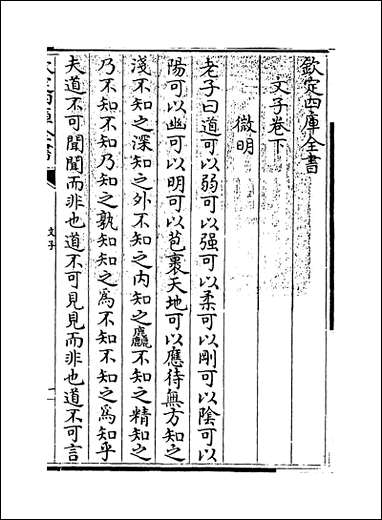 欽定四庫全書
文子卷下
微明
老子曰道可以弱可以强可以柔可以剛可以陰可以
陽可以幽可以明可以苞裹天地可以應待無方知之
淺不知之深知之外不知之内知之麤不知之精知之
乃不知不知乃知之孰知知之為不知不知之為知乎
夫道不可聞聞而非也道不可見見而非也道不可言
文子